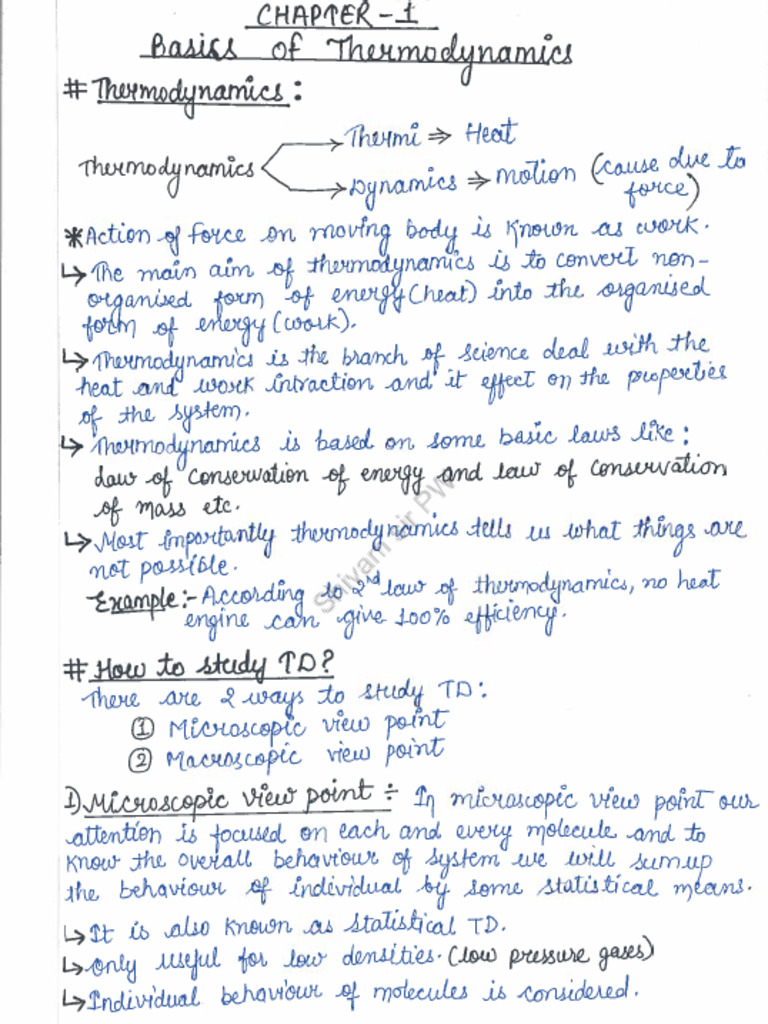 CHAPTER-1
Basics of Thermodynamics
# Thermodynamics:
Thermi ⇒ Heat
Thermodynamics
Dynamics ⇒ motion (cause due to
force)
*Action of force on moving body is known as work.
↳ The main aim of thermodynamics is to convert non-
organised form of energy (heat) into the organised
form of energy (work).
↳ Thermodynamics is the branch of science deal with the
heat and work intraction and it effect on the properties
of the system.
↳ Thermodynamics is based on some basic laws like:
Law of conservation of energy and law of conservation
of mass etc.
↳ Most importantly thermodynamics tells us what things are
not possible.
Example:- According to 2nd law of thermodynamics, no heat
engine can give 100% efficiency.
# How to study TD?
There are 2 ways to study TD:
① Microscopic view point
② Macroscopic view point
1) Microscopic view point ÷ In microscopic view point our
attention is focused on each and every molecule and to
know the overall behaviour of system we will sum up
the behaviour of individual by some statistical means.
↳ It is also known as statistical TD.
↳ only useful for low densities. (low pressure gases)
↳ Individual behaviour of molecules is considered.
Shivam Sir PW